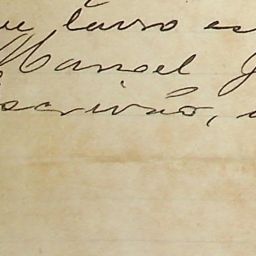 ue lavro es
Manoel J
scrivão,